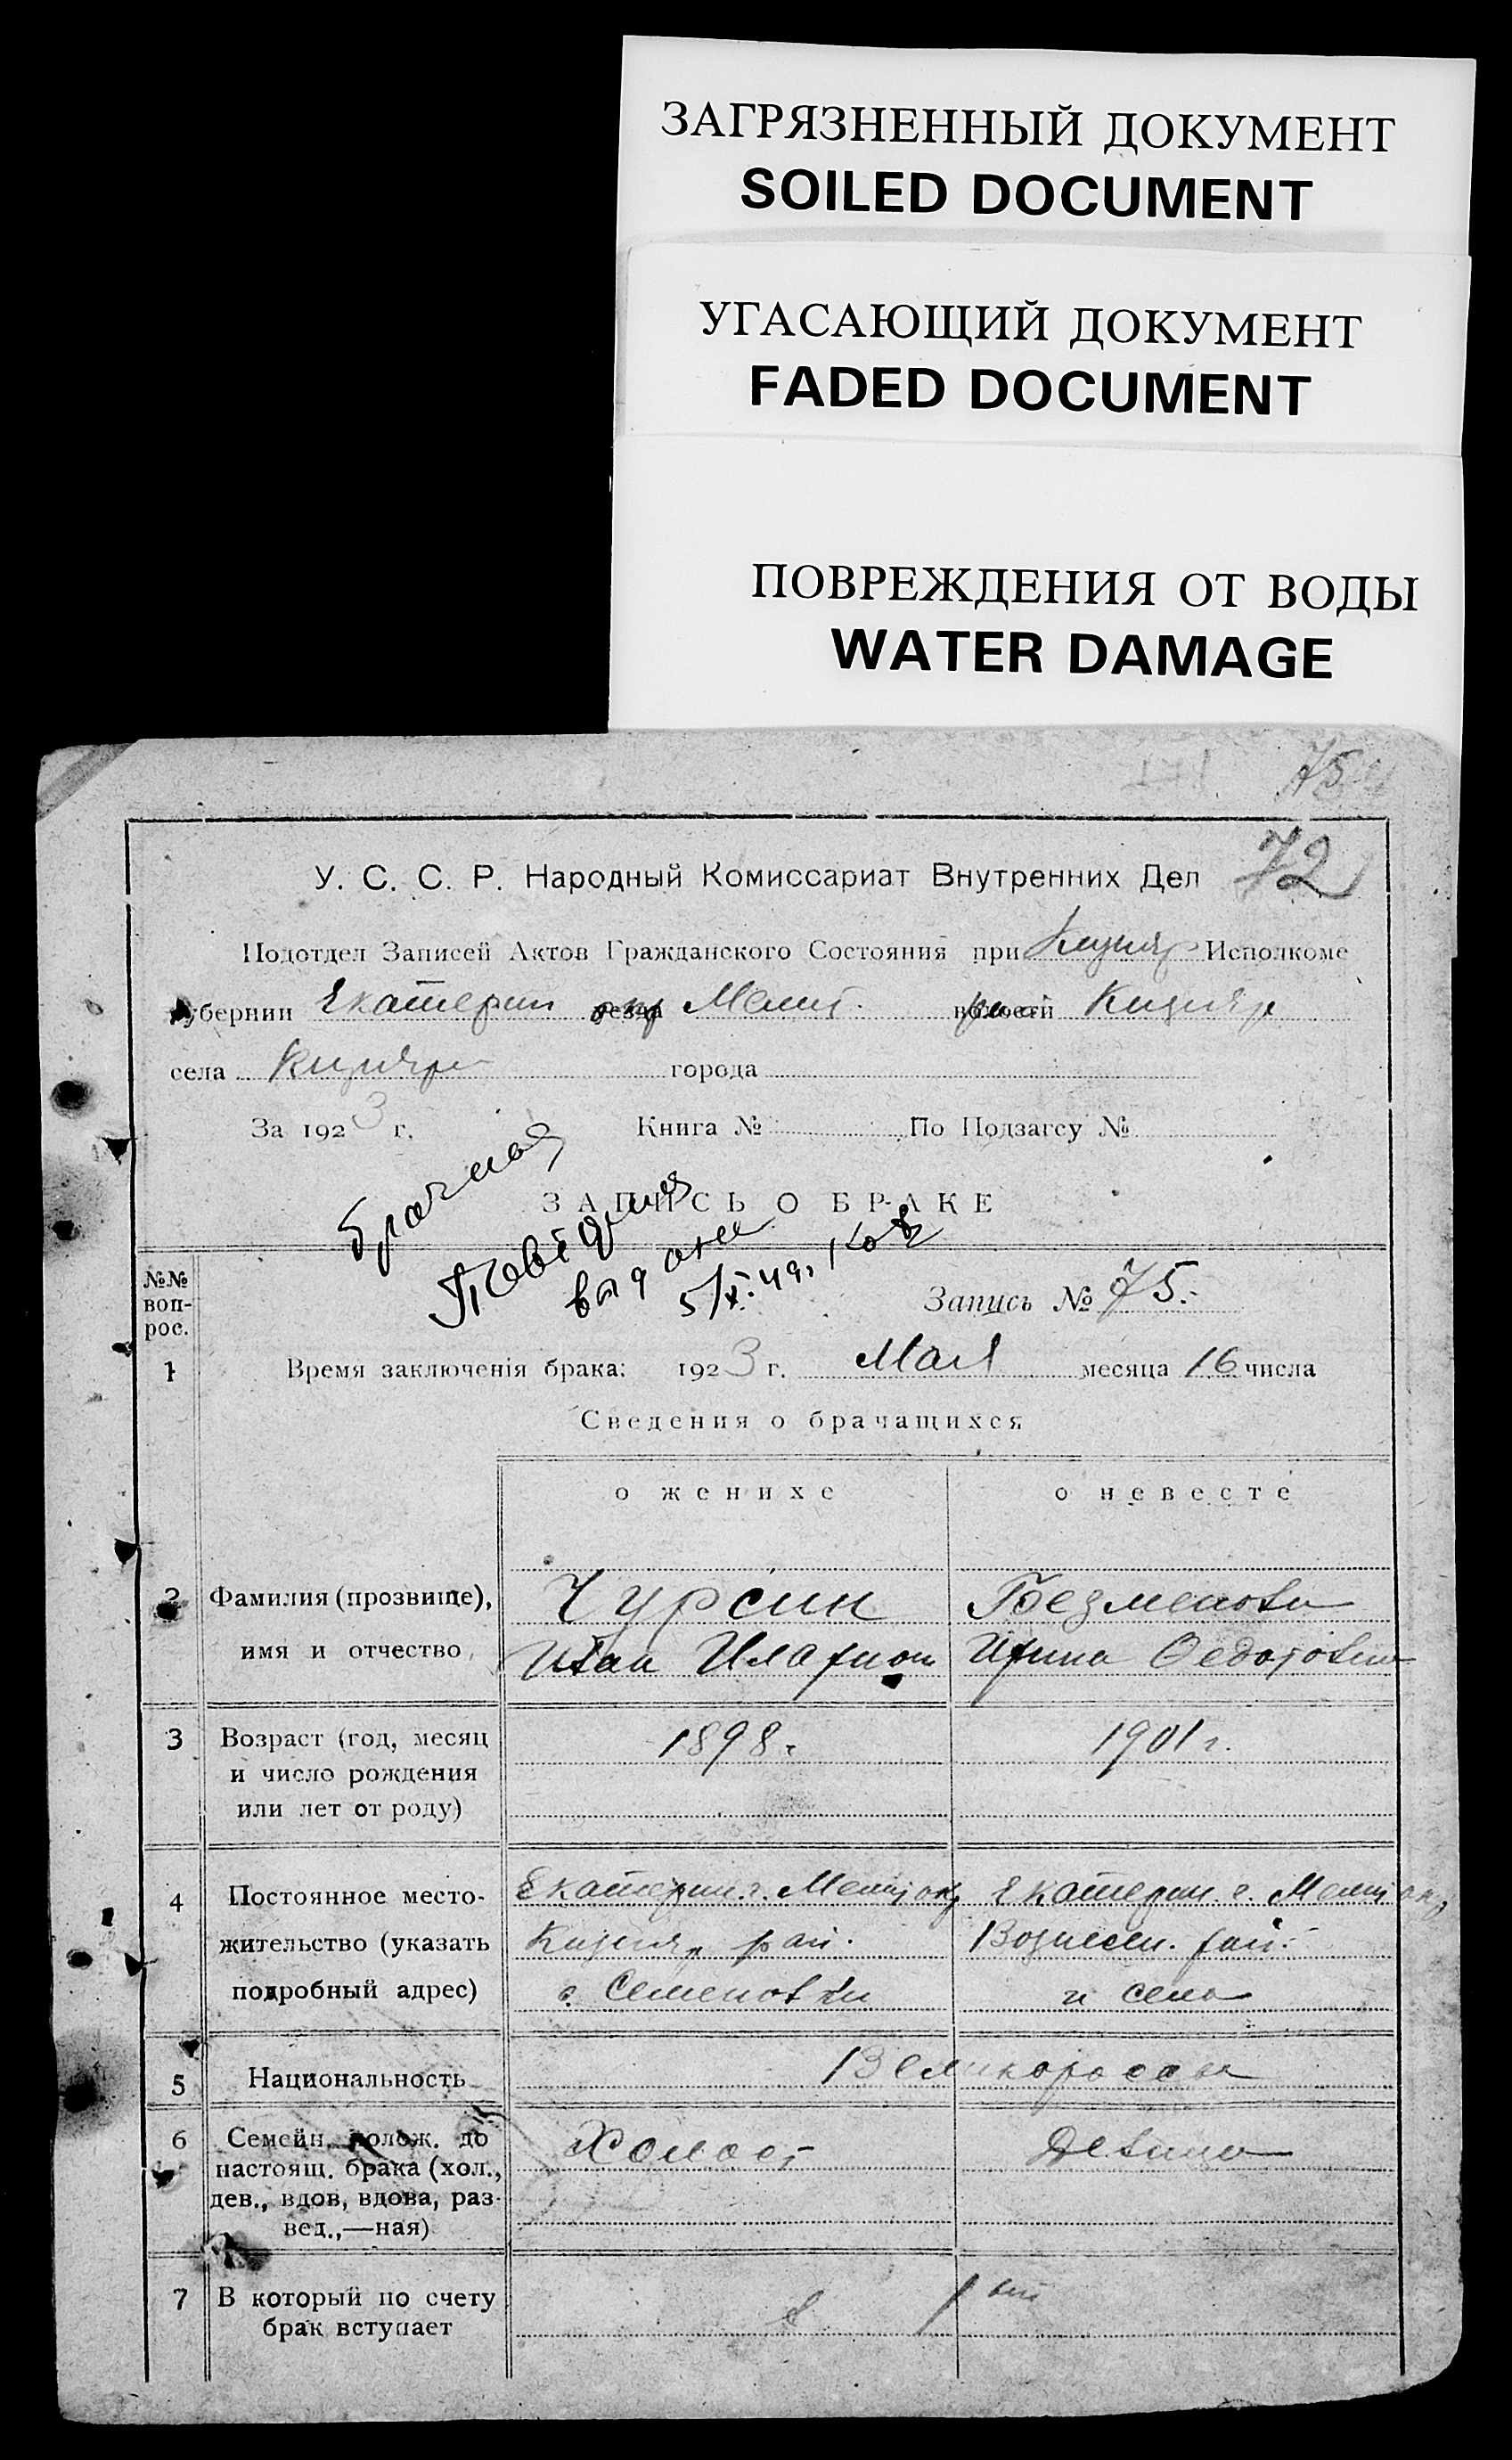 ЗАГРЯЗНЕННЫЙ ДОКУМЕНТ
SOILED DOCUMENT
УГАСАЮЩИЙ ДОКУМЕНТ
FADED DOCUMENT
ПОВРЕЖДЕНИЯ ОТ ВОДЫ
WATER DAMAGE
75
72
У. С. С. Р. Народный Комиссариат Внутренних Дел
Подотдел Записей Актов Гражданского Состояния при Кизияр Исполкоме
губернии Екатерин уезда окр Мелит. волости рай Кизияр
села Кизияр города
За 1923 г. Книга № По Подзагсу №
ЗАПИСЬ О БРАКЕ
Брачная
выдано
№№ воп-рос.
Запись № 75.
1 Время заключенія брака: 1923 г. Мая месяца 16 числа
Сведения о брачащихся
о женихе о невесте
2 Фамилия (прозвище), Чурсин Безменова
имя и отчество Иван Иларион Ирина Федотовна
3 Возраст (год, месяц 1898 г. 1901 г.
и число рождения
или лет от роду)
4 Постоянное место- Екатерин. г. Мелит окр Екатерин. г. Мелит окр,
жительство (указать Кизияр рай. Вознесен. рай.
подробный адрес) с. Семеновки и села
5 Национальность Великороссы
6 Семейн. полож. до Холост Девица
настоящ. брака (хол.,
дев., вдов, вдова, раз-
вед.,—ная)
7 В который по счету 1 вый
брак вступает